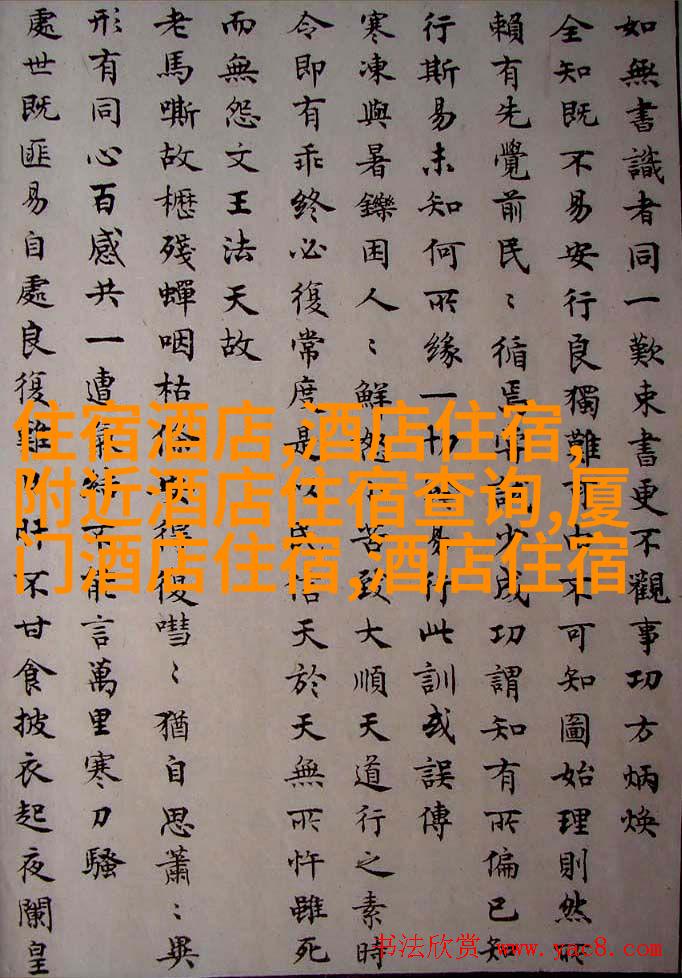 如無書識者同一歎束書更不觀事功方炳煥
全知既不易安行良獨難可由不可知圖始理則然所
賴有先覺前民〻循焉罕識少成功謂知有所偏已知
行斯易未知何所緣一切易行此訓或誤傳
寒凍與暑鑠困人〻鮮怨苦致大順天道行之素時
令即有乖終必復常度是以民信天於天無所忤雖死
而無怨文王法天故
老馬嘶故櫪殘蟬咽枯得復嘒〻猶自思蕭〻異
形有同心百感共一遭氣結不能言萬里寒刀騷
處世既匪易自處良復難不甘食披衣起夜闌皇
住宿酒店,酒店住宿,
附近酒店住宿查询,厦
门酒店住宿,酒店住宿
书法欣赏 www.yac8.com